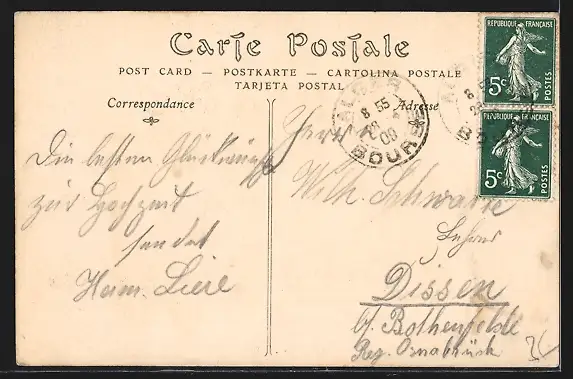 Carte Postale
POST CARD — POSTKARTE — CARTOLINA POSTALE
TARJETA POSTAL
Correspondance
Adresse
REPUBLIQUE FRANÇAISE
5c
POSTES
REPUBLIQUE FRANÇAISE
5c
POSTES
8 55
BOUR
Die besten Glückwünsche
zur Hochzeit
sendet
Herm.
Herrn
Wilh. Schwarte
Dissen
b/ Rothenfelde
Reg. Osnabrück